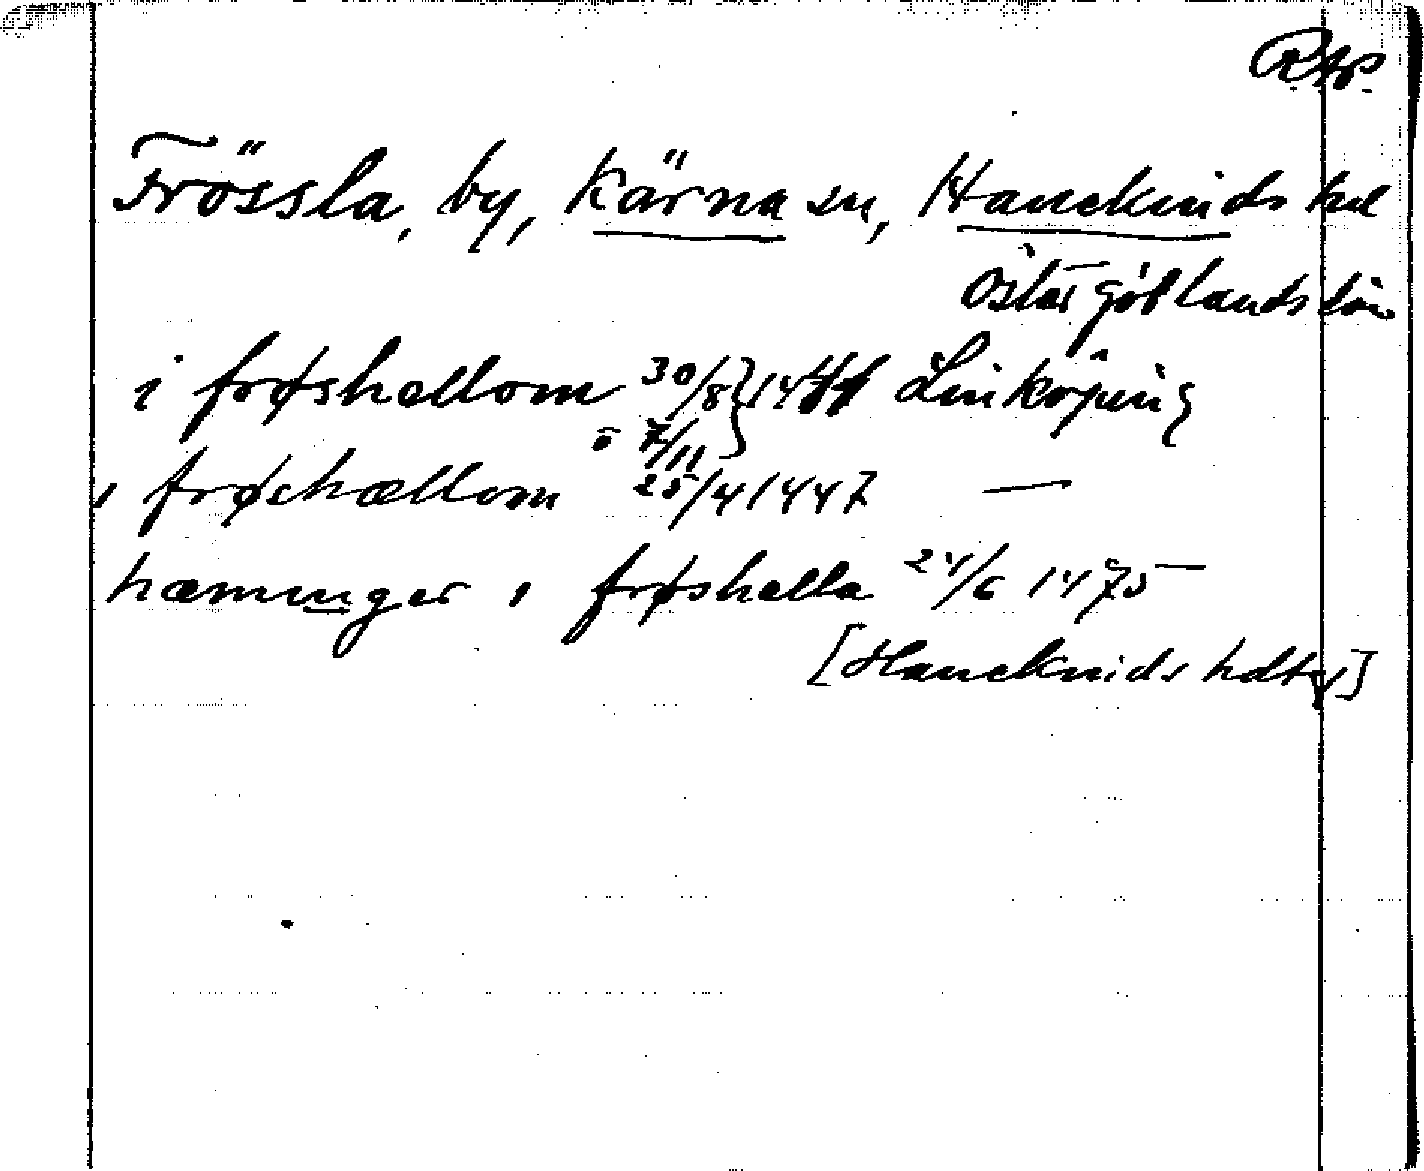 RAp
Frössla, by, Kärna sn, Hanekinds hd
Östergötlands län
i frøshællom 30/8 } 1444 Linköping
o 7/11
i frøshællom 25/4 1447 —
hæminger i frøshella 24/6 1475 —
[Hanekinds hdtg]